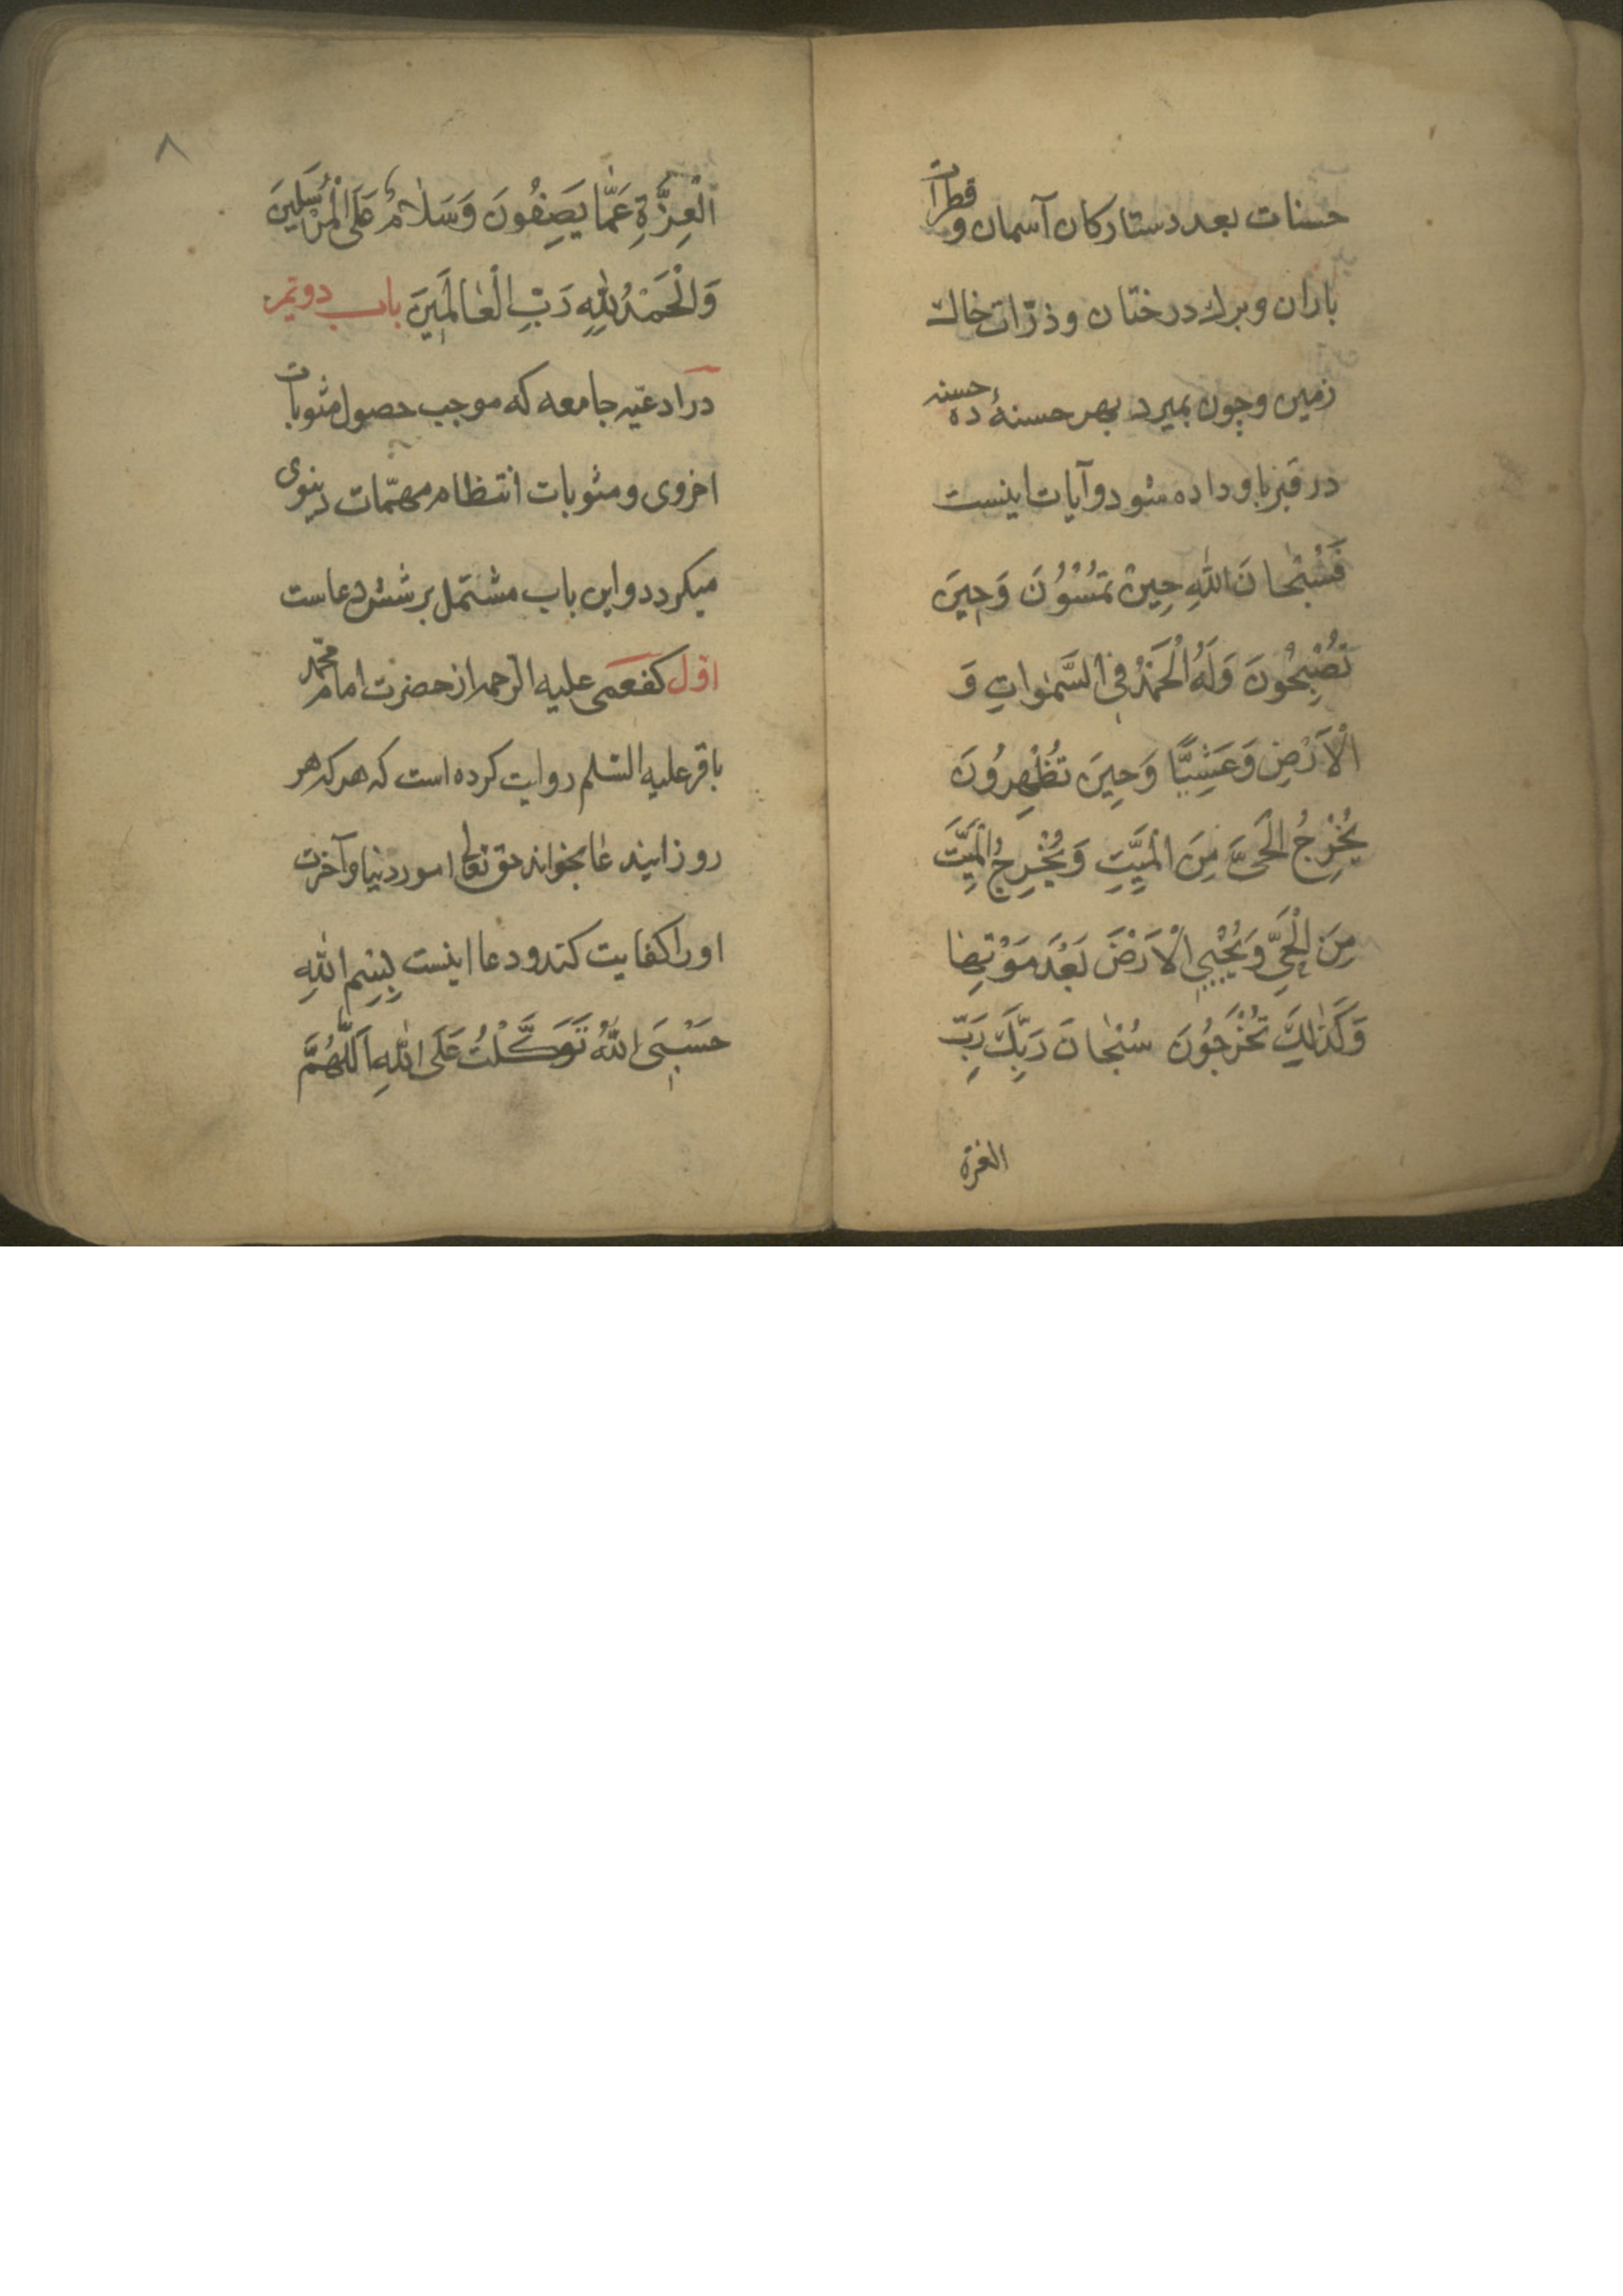 حسنات بعدد ستارکان آسمان و قطرات
باران و برك درختان و ذرّات خاك
زمین و چون بمیرد بهر حسنهٔ ده حسنه
در قبر باو داده شود و آیات اینست
فَسُبْحٰانَ اللّٰهِ حِینَ تُمْسُوُنَ وَحِینَ
تُصْبِحُونَ وَلَهُ الْحَمْدُ فِی السَّمٰوٰاتِ وَ
الْاَرْضِ وَعَشِیًّا وَحِینَ تُظْهِرُونَ
یُخْرِجُ الْحَیَّ مِنَ الْمَیِّتِ وَیُخْرِجُ الْمَیِّتَ
مِنَ الْحَیِّ وَیُحْیِی الْاَرْضَ بَعْدَ مَوْتِهٰا
وَکَذٰلِكَ تُخْرَجُونَ سُبْحٰانَ رَبِّكَ رَبِّ
العزة
۸
الْعِزَّةِ عَمّٰا یَصِفُونَ وَسَلٰامٌ عَلَی الْمُرْسَلِینَ
وَالْحَمْدُ لِلّٰهِ رَبِّ الْعٰالَمِینَ باب دویّم
در ادعیّه جامعه که موجب حصول مثوبات
اخروی و مثوبات انتظام مهمّات دنیوی
میکردد و این باب مشتمل بر شش دعاست
اوّل کفعمی علیه الرحمه از حضرت امام محمّد
باقر علیه السّلم روایت کرده است که هر که هر
روز ایندعا بخواند حق تعالی امور دنیا و آخرت
او را کفایت کند و دعا اینست بِسْمِ اللّٰهِ
حَسْبِیَ اللّٰهُ تَوَکَّلْتُ عَلَی اللّٰهِ اَللّٰهُمَّ